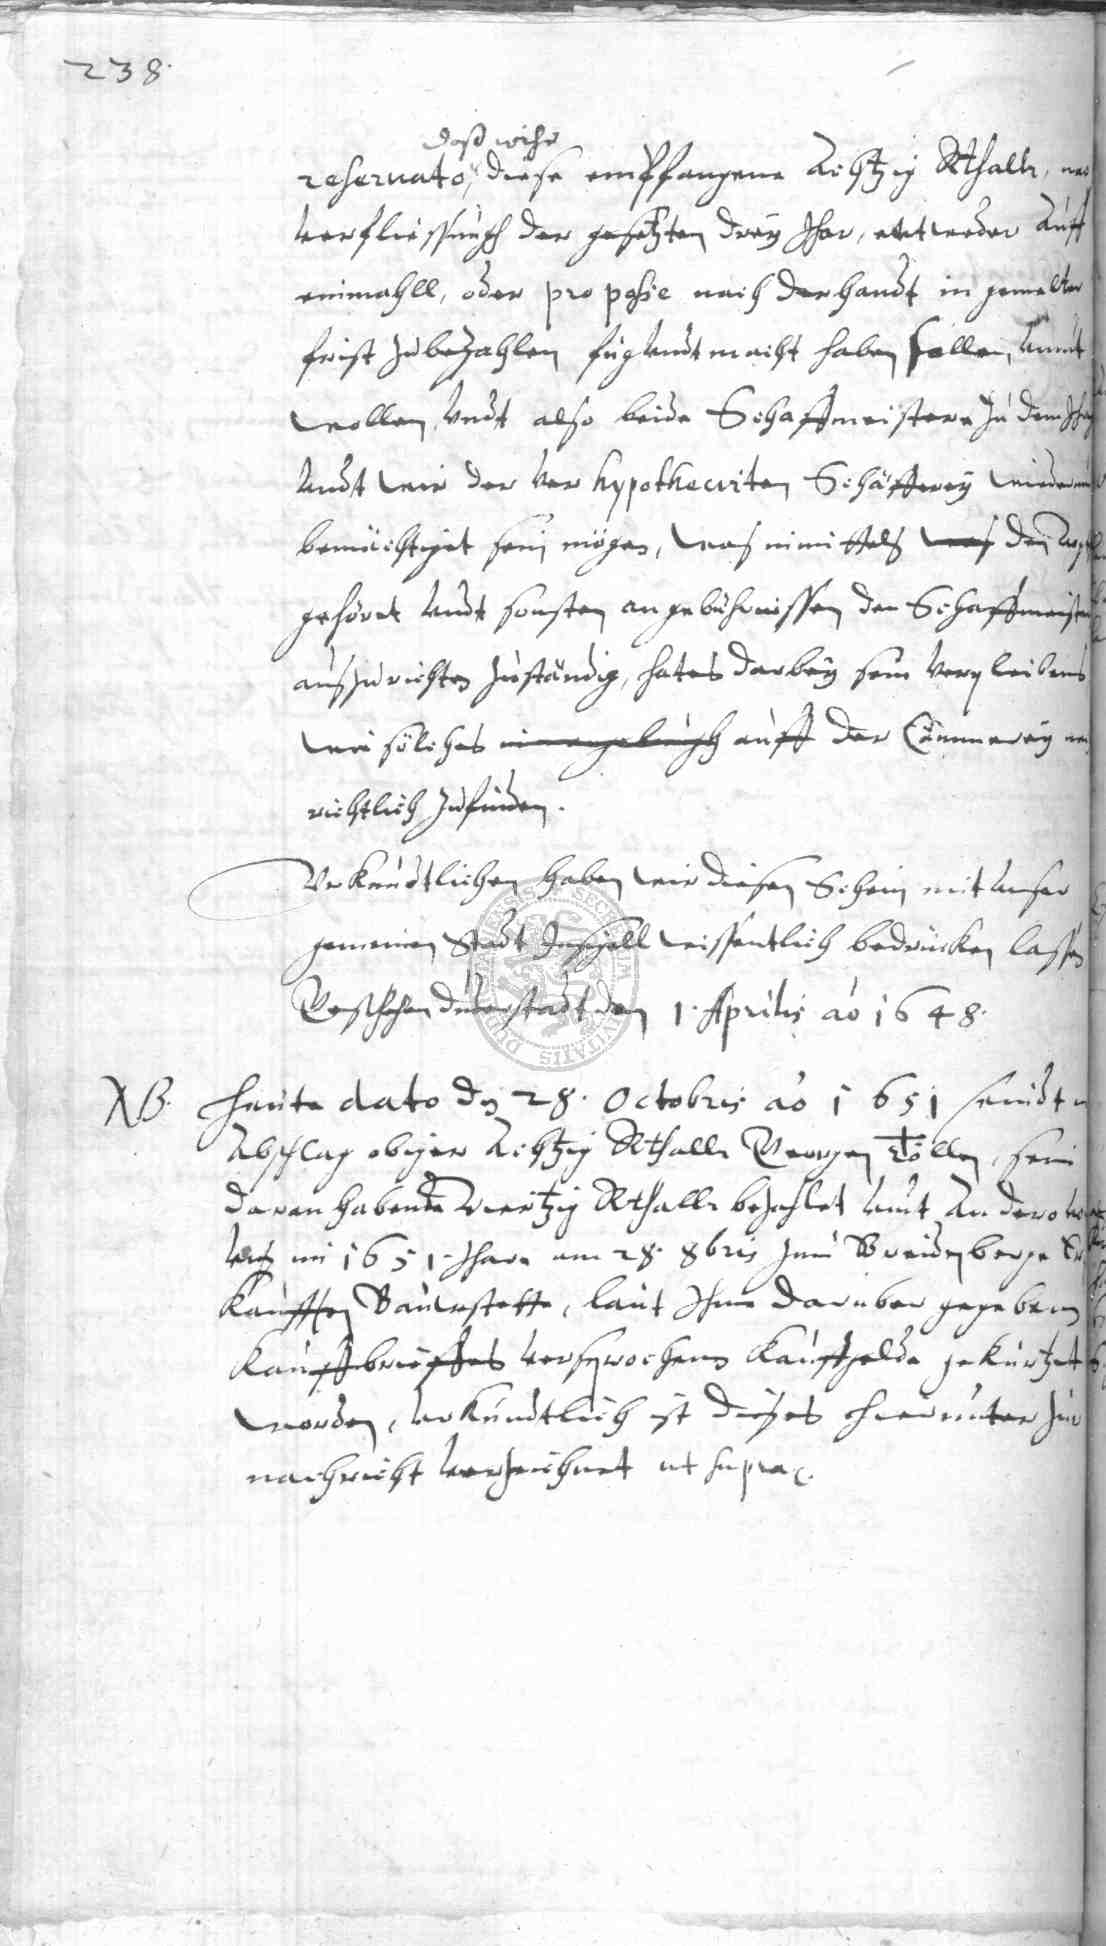 238.
daß wihr
reseruato, diese empffangene Achtzig Rthallr, nach
verfliessungh der gesetzten drey Jhar, entweder auff
einmahll, oder pro posse nach der handt in gemelter
frist zubezahlen fug undt macht haben sollen, unndt
wollen, Undt also beide Schaffmeistere zu dem
undt wir der verhypothecirten Schäfferey wiederumb
bemächtiget sein mögen, was inmittels was den
gehöret undt sonsten an gebührnissen den Schaffmeistern
auszurichten zuständig, hat es darbey sein verpleibens
wie sölches auff der Cämmerey
richtlich zufinden.
Urkundtlichen haben wir diesen Schein mit unser
gemeinen Stadt Insigell wissentlich bedrücken lassen
Geschehen Duderstadt den 1. Aprilis ao 1648.
NB. Heute dato den 28. Octobris ao 1651 seindt
Abschlag obiger Achtzig Rthallr Georgen Töllen, sein
daran habende viertzig Rthallr bezahlet undt An dero
im 1651. Jhare am 28. 8bris zum Breidenberge
kaufften Bauerstette, laut Ihme darüber gegebenen
kauffbrieffes versprochene kauffgelde gekürtzet
worden, urkundtlich ist dieses hierunter zur
nachricht verzeichnet ut supra.
SECRETA CIVITATIS DUD